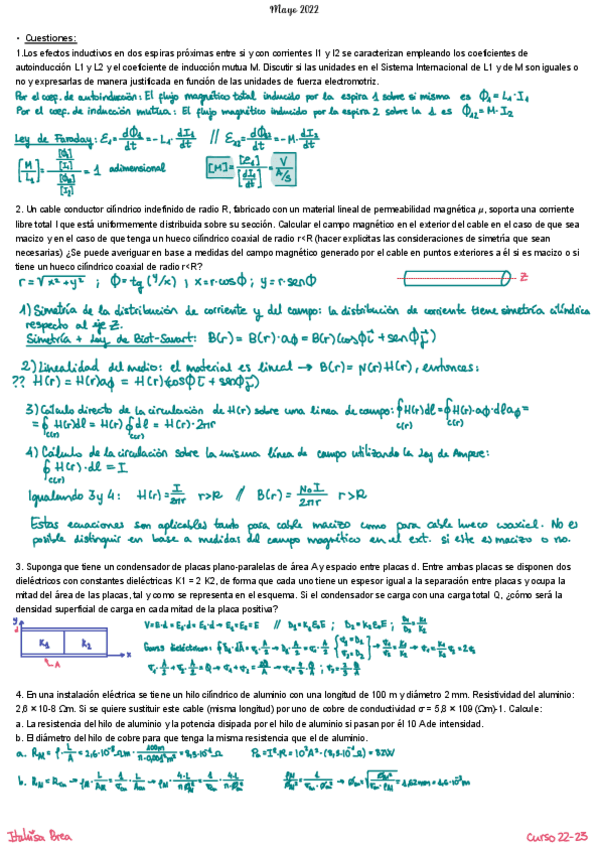 Mayo 2022
• Cuestiones:
1.Los efectos inductivos en dos espiras próximas entre si y con corrientes I1 y I2 se caracterizan empleando los coeficientes de
autoinducción L1 y L2 y el coeficiente de inducción mutua M. Discutir si las unidades en el Sistema Internacional de L1 y de M son iguales o
no y expresarlas de manera justificada en función de las unidades de fuerza electromotriz.
Por el coef. de autoinducción: El flujo magnético total inducido por la espira 1 sobre si misma es Φ₁ = L₁·I₁
Por el coef. de inducción mutua: El flujo magnético inducido por la espira 2 sobre la 1 es Φ₁₂ = M·I₂
Ley de Faraday: ε₁ = dΦ₁/dt = -L₁·dI₁/dt // ε₁₂ = dΦ₁₂/dt = -M·dI₂/dt
[M/L₁] = = 1 adimensional [M] = = V/(A/s)
2. Un cable conductor cilíndrico indefinido de radio R, fabricado con un material lineal de permeabilidad magnética μ, soporta una corriente
libre total I que está uniformemente distribuida sobre su sección. Calcular el campo magnético en el exterior del cable en el caso de que sea
macizo y en el caso de que tenga un hueco cilíndrico coaxial de radio r<R (hacer explicitas las consideraciones de simetría que sean
necesarias) ¿Se puede averiguar en base a medidas del campo magnético generado por el cable en puntos exteriores a él si es macizo o si
tiene un hueco cilíndrico coaxial de radio r<R?
r = √x²+y² ; Φ = tg (y/x) ; x = r·cosΦ ; y = r·senΦ
z
1) Simetría de la distribución de corriente y del campo: la distribución de corriente tiene simetría cilíndrica
respecto al eje z.
Simetría + Ley de Biot-Savart: B(r) = B(r)·aφ = B(r)(cosΦi + senΦj)
2) Linealidad del medio: el material es lineal → B(r) = N(r)H(r), entonces:
?? H(r) = H(r)aφ = H(r)(cosΦi + senΦj)
3) Cálculo directo de la circulación de H(r) sobre una línea de campo: ∮H(r)dl = ∮H(r)·aφ·dlaφ =
= ∮H(r)dl = H(r)∮dl = H(r)·2πr
4) Cálculo de la circulación sobre la misma línea de campo utilizando la ley de Ampere:
∮H(r)·dl = I
Igualando 3 y 4: H(r) = I/2πr r>R // B(r) = N₀I/2πr r>R
Estas ecuaciones son aplicables tanto para cable macizo como para cable hueco coaxial. No es
posible distinguir en base a medidas del campo magnético en el ext. si este es macizo o no.
3. Suponga que tiene un condensador de placas plano-paralelas de área A y espacio entre placas d. Entre ambas placas se disponen dos
dieléctricos con constantes dieléctricas K1 = 2 K2, de forma que cada uno tiene un espesor igual a la separación entre placas y ocupa la
mitad del área de las placas, tal y como se representa en el esquema. Si el condensador se carga con una carga total Q, ¿cómo será la
densidad superficial de carga en cada mitad de la placa positiva?
y
d
K₁ K₂
x
A
V = E·d = E₁·d = E₂·d → E₁ = E₂ = E // D₁ = K₁ε₀E ; D₂ = K₂ε₀E ; D₁/D₂ = K₁/K₂
Gauss dieléctricos:
4. En una instalación eléctrica se tiene un hilo cilíndrico de aluminio con una longitud de 100 m y diámetro 2 mm. Resistividad del aluminio:
2,6 × 10-8 Ωm. Si se quiere sustituir este cable (misma longitud) por uno de cobre de conductividad σ = 5,8 × 109 (Ωm)-1. Calcule:
a. La resistencia del hilo de aluminio y la potencia disipada por el hilo de aluminio si pasan por él 10 A de intensidad.
b. El diámetro del hilo de cobre para que tenga la misma resistencia que el de aluminio.
a.
b.
Curso 22-23